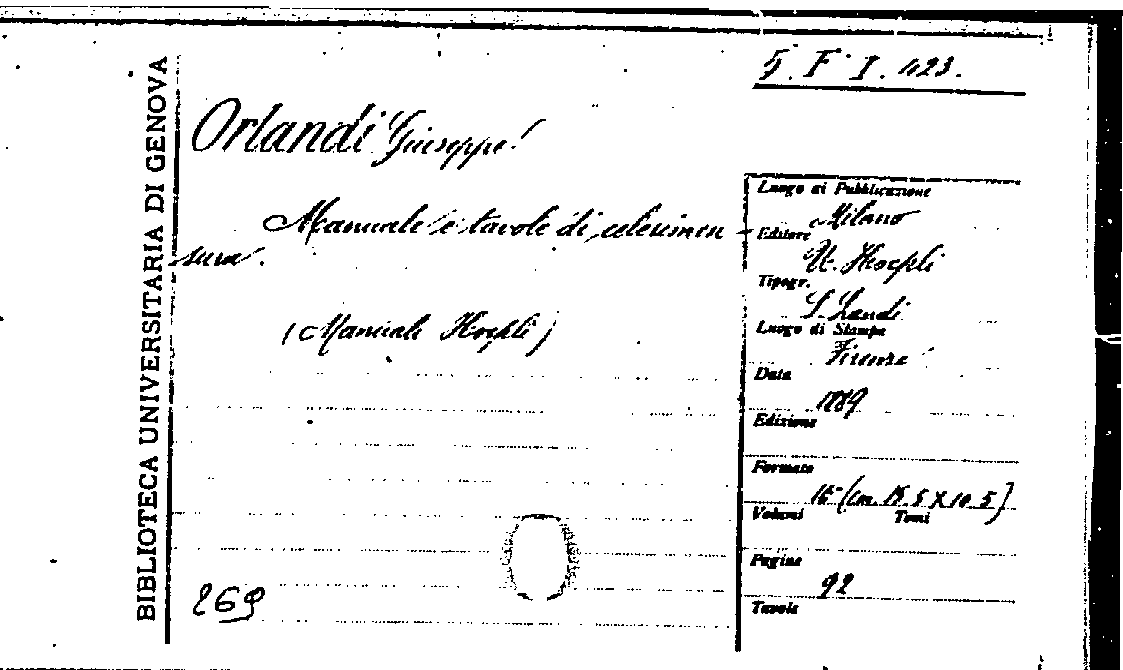 BIBLIOTECA UNIVERSITARIA DI GENOVA
5. F. I. 423.
Orlandi Giuseppe
Manuale e tavole di celerimen-
sura.
(Manuale Hoepli)
269
Luogo di Pubblicazione
Milano
Editore
U. Hoepli
Tipogr.
S. Landi
Luogo di Stampa
Firenze
Data
1889
Edizione
Formato
16° (cm. 15.5 X 10.5)
Volumi Tomi
Pagine
92
Tavole